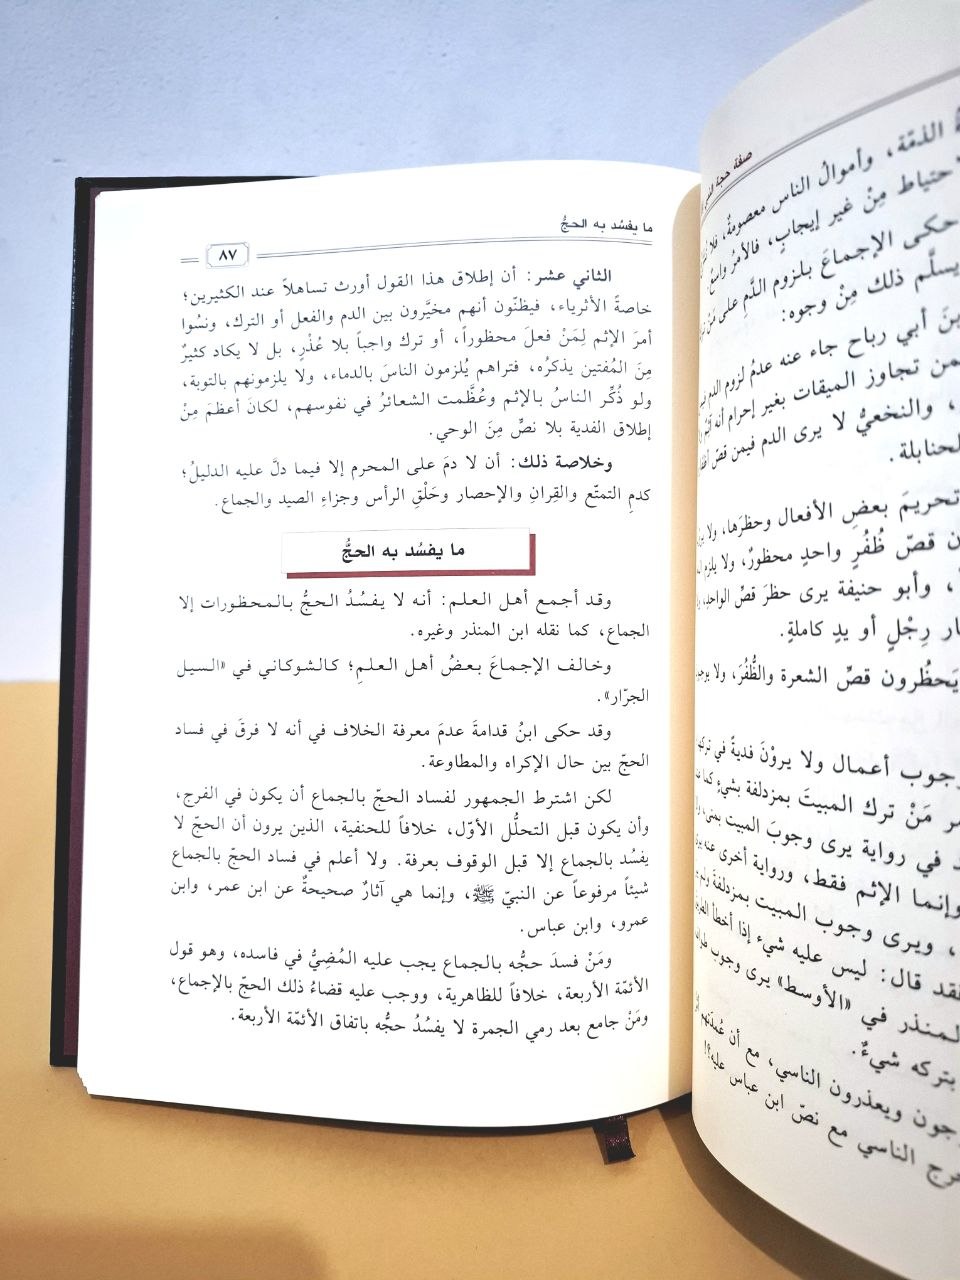 صفة حجة النبي
الذمّة، وأموالُ الناس معصومةٌ، فلا
حتياط مِنْ غير إيجابٍ، فالأمرُ واسعٌ.
حكى الإجماعَ بلزوم الدَّمِ على مَنْ
يسلَّم ذلك مِنْ وجوه:
أبي رباح جاء عنه عدمُ لزوم الدم
تجاوز الميقات بغير إحرام أنه
والنخعيُّ لا يرى الدم فيمن قصّ
لحنابلة.
تحريمَ بعضِ الأفعال وحظرَها، ولا
قصّ ظُفُرٍ واحدٍ محظورٌ، ولا يلزم
وأبو حنيفة يرى حظرَ قصِّ الواحد،
رِجْلٍ أو يدٍ كاملةٍ.
يَحظُرون قصَّ الشعرة والظُّفُرَ، ولا
جوب أعمال ولا يروْنَ فديةً في
مَنْ ترك المبيتَ بمزدلفة بشيءٍ كما
في رواية يرى وجوبَ المبيت بمنى،
وإنما الإثم فقط، ورواية أخرى عنه
، ويرى وجوب المبيت بمزدلفة
فقد قال: ليس عليه شيء إذا أخطأ
لمنذر في «الأوسط» يرى وجوب
بتركه شيءٌ.
ويعذرون الناسي، مع أن عُمدتَهم
الناسي مع نصّ ابن عباس عليه؟!
ما يفسُد به الحجُّ
٨٧
الثاني عشر: أن إطلاق هذا القول أورث تساهلاً عند الكثيرين؛
خاصةً الأثرياء، فيظنّون أنهم مخيَّرون بين الدم والفعل أو الترك، ونسُوا
أمرَ الإثم لِمَنْ فعلَ محظوراً، أو ترك واجباً بلا عُذْرٍ، بل لا يكاد كثيرٌ
مِنَ المُفتين يذكرُه، فتراهم يُلزمون الناسَ بالدماء، ولا يلزمونهم بالتوبة،
ولو ذُكِّر الناسُ بالإثم وعُظَّمت الشعائرُ في نفوسهم، لكانَ أعظمَ مِنْ
إطلاق الفدية بلا نصٍّ مِنَ الوحي.
وخلاصة ذلك: أن لا دمَ على المحرم إلا فيما دلَّ عليه الدليلُ؛
كدمِ التمتّع والقِرانِ والإحصار وحَلْقِ الرأس وجزاءِ الصيد والجماع.
ما يفسُد به الحجُّ
وقد أجمع أهل العلم: أنه لا يفسُدُ الحجُّ بالمحظورات إلا
الجماع، كما نقله ابن المنذر وغيره.
وخالف الإجماعَ بعضُ أهل العلمِ؛ كالشوكاني في «السيل
الجرّار».
وقد حكى ابنُ قدامةَ عدمَ معرفة الخلاف في أنه لا فرقَ في فساد
الحجّ بين حال الإكراه والمطاوعة.
لكن اشترط الجمهور لفساد الحجّ بالجماع أن يكون في الفرج،
وأن يكون قبل التحلُّل الأوّل، خلافاً للحنفية، الذين يرون أن الحجّ لا
يفسُد بالجماع إلا قبل الوقوف بعرفة. ولا أعلم في فساد الحجّ بالجماع
شيئاً مرفوعاً عن النبيّ ﷺ، وإنما هي آثارٌ صحيحةٌ عن ابن عمر، وابن
عمرو، وابن عباس.
ومَنْ فسدَ حجُّه بالجماع يجب عليه المُضِيُّ في فاسده، وهو قول
الأئمّة الأربعة، خلافاً للظاهرية، ووجب عليه قضاءُ ذلك الحجّ بالإجماع،
ومَنْ جامع بعد رمي الجمرة لا يفسُدُ حجُّه باتفاق الأئمّة الأربعة.